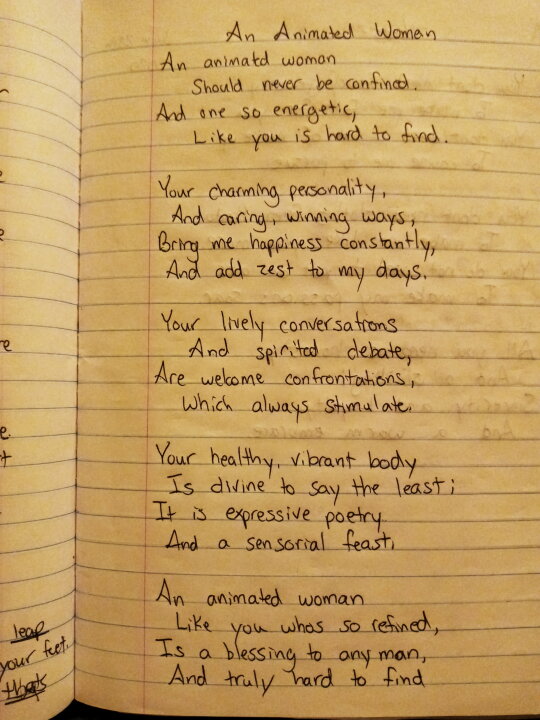 An Animated Woman
An animatd woman
Should never be confined.
And one so energetic,
Like you is hard to find.
Your charming personality,
And caring, winning ways,
Bring me happiness constantly,
And add zest to my days.
Your lively conversations
And spirited debate,
Are welcome confrontations,
Which always stimulate.
Your healthy, vibrant body
Is divine to say the least;
It is expressive poetry
And a sensorial feast.
An animated woman
Like you whos so refined,
Is a blessing to any man,
And truly hard to find
leap
your feet.